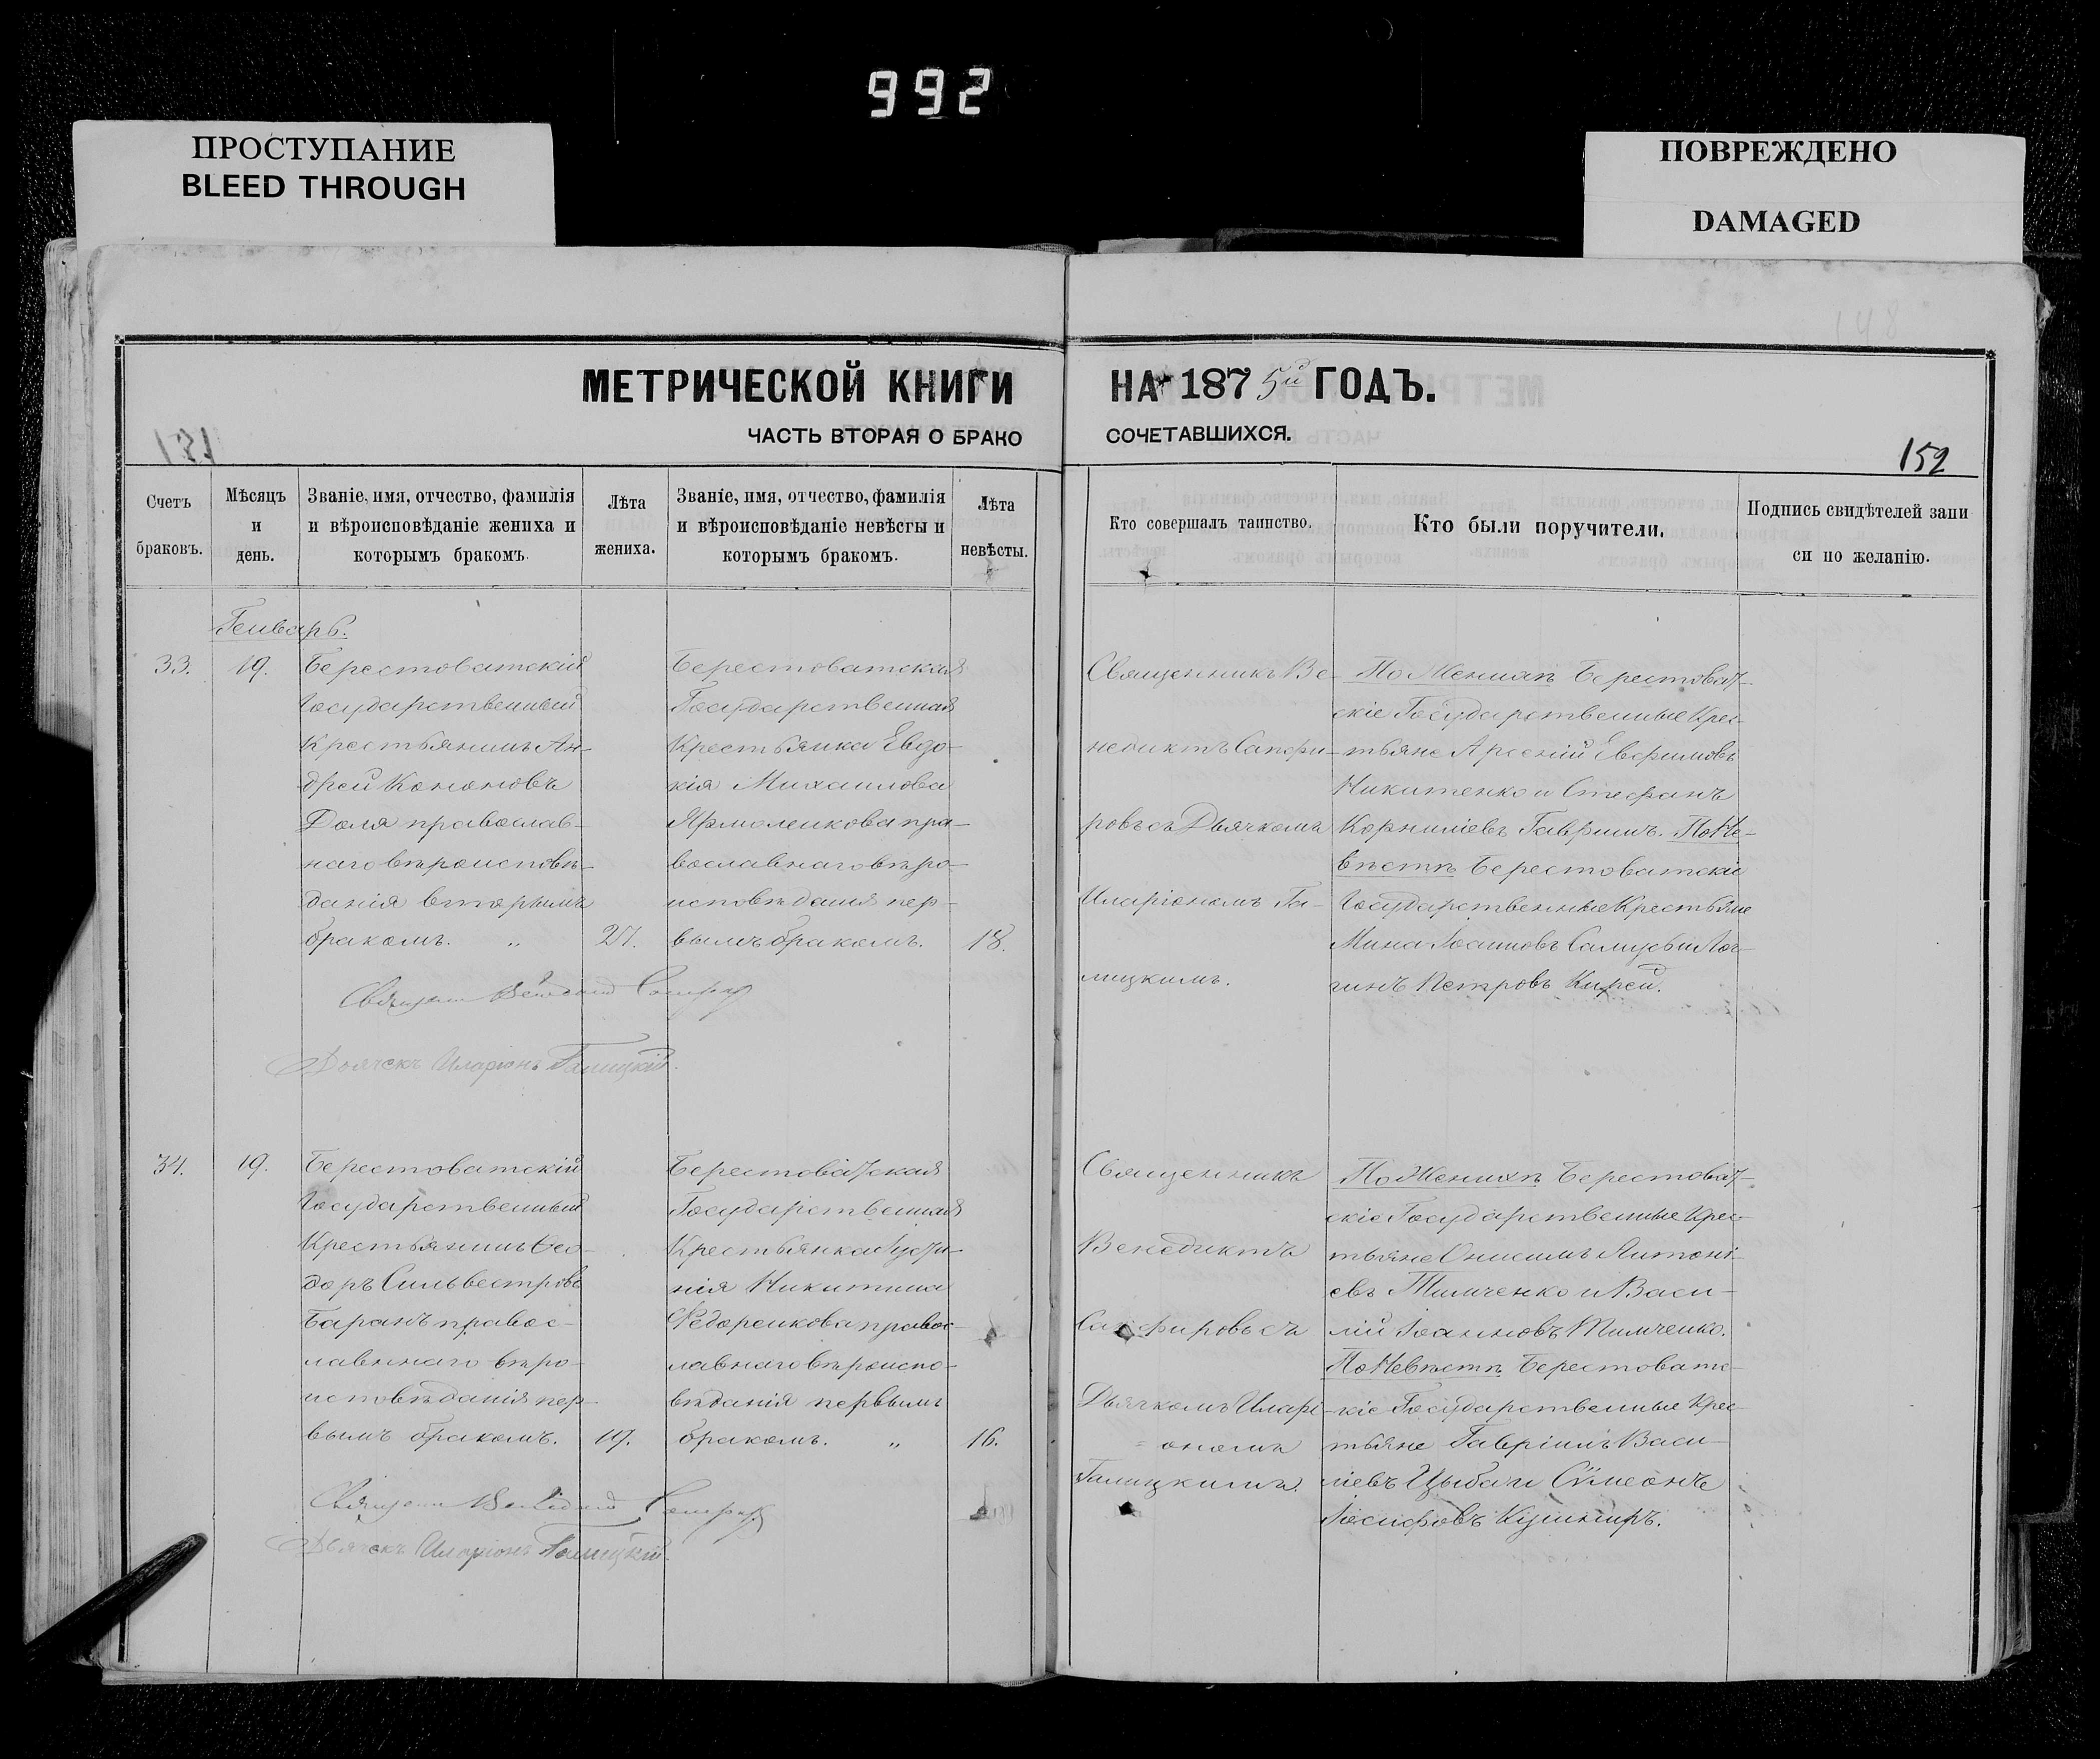 992
ПРОСТУПАНИЕ
BLEED THROUGH
ПОВРЕЖДЕНО
DAMAGED
МЕТРИЧЕСКОЙ КНИГИ
НА 1875й ГОДЪ.
ЧАСТЬ ВТОРАЯ О БРАКО
СОЧЕТАВШИХСЯ.
131
148
152
Счетъ
браковъ.
Мѣсяцъ
и
день.
Званіе, имя, отчество, фамилія
и вѣроисповѣданіе жениха и
которымъ бракомъ.
Лѣта
жениха.
Званіе, имя, отчество, фамилія
и вѣроисповѣданіе невѣсты и
которымъ бракомъ.
Лѣта
невѣсты.
Кто совершалъ таинство.
Кто были поручители.
Подпись свидѣтелей запи
си по желанію.
Генварь.
33.
19.
Берестоватскій
Государственный
Крестьянинъ Ан-
дрей Кононовъ
Доля православ-
наго вѣроисповѣ-
данія вторымъ
бракомъ. „
27.
Берестоватская
Государственная
Крестьянка Евдо-
кія Михаилова
Ярмоленкова пра-
вославнаго вѣро-
исповѣданія пер-
вымъ бракомъ.
18.
Священникъ Ве-
недиктъ Сапфи-
ровъ съ Дьячкомъ
Иларіономъ Га-
лицкимъ.
По Женихѣ Берестоват-
скіе Государственные Крес-
тьяне Арсеній Евфимовъ
Никитенко и Стефанъ
Корниліевъ Гавришъ. По Не-
вѣстѣ Берестоватскіе
Государственные Крестьяне
Мина Іоанновъ Самусь и Лог-
гинъ Петровъ Кирей.
Священникъ Венедиктъ Сапфировъ
Дьячекъ Иларіонъ Галицкій.
34.
19.
Берестоватскій
Государственный
Крестьянинъ Ѳео-
доръ Сильвестровъ
Баранъ правос-
лавннаго вѣро-
исповѣданія пер-
вымъ бракомъ.
19.
Берестоватская
Государственная
Крестьянка Іусти-
нія Никитина
Ѳедоренкова правос-
лавнаго вѣроиспо-
вѣданія первымъ
бракомъ. „
16.
Священникъ
Венедиктъ
Сапфировъ съ
Дьячкомъ Иларі-
ономъ
Галицкимъ.
По Женихѣ Берестоват-
скіе Государственные Крес-
тьяне Онисимъ Антоні-
евъ Тимченко и Васи-
лій Іоанновъ Тимченко.
По Невѣстѣ Берестоватс-
кіе Государственные Крес-
тьяне Гавріилъ Васи-
ліевъ Цыба и Сѵмеонъ
Іосифовъ Кушниръ.
Священникъ Венедиктъ Сапфировъ
Дьячекъ Иларіонъ Галицкій.